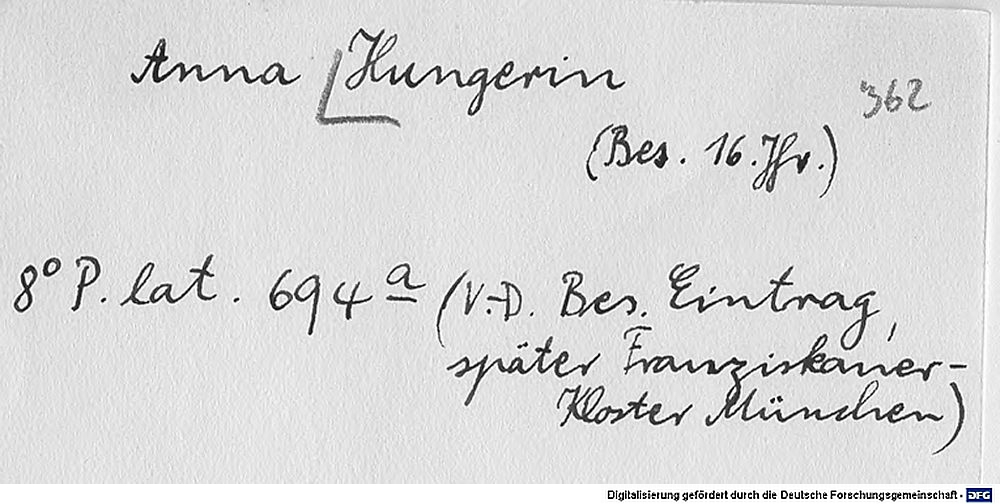 Anna Hungerin
362
(Bes. 16. Jhr.)
8° P. lat. 694 a (V.-D. Bes. Eintrag,
später Franziskaner-
Kloster München)
Digitalisierung gefördert durch die Deutsche Forschungsgemeinschaft - DFG